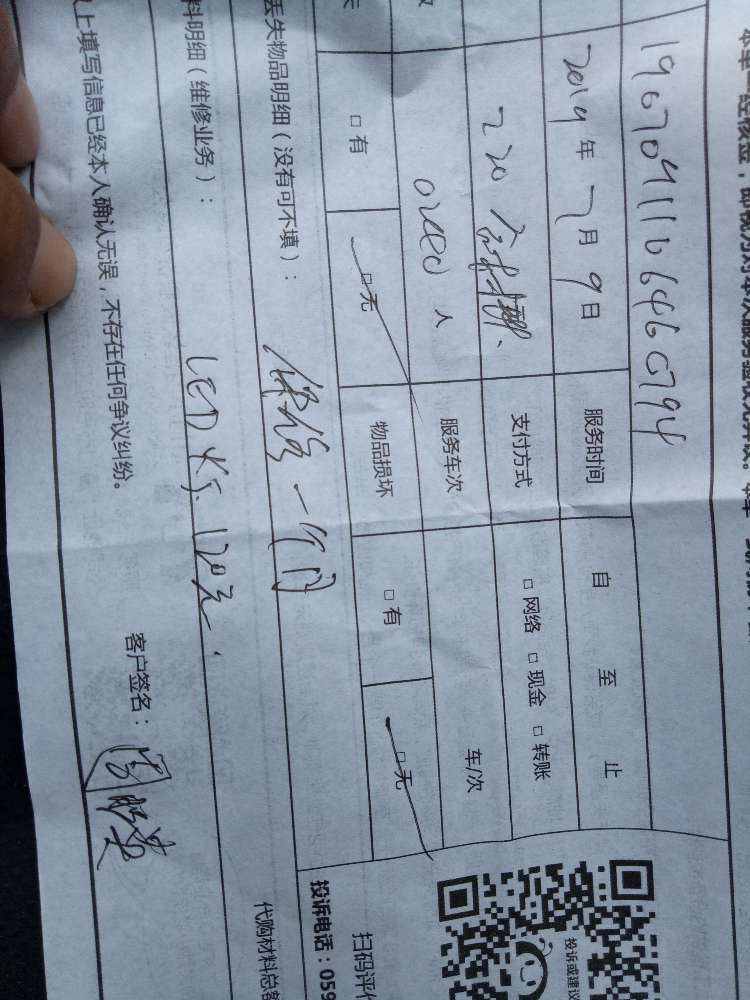 2019年7月9日 服务时间 自 至 止
220 支付方式 □网络 □现金 □转账
人 服务车次 车/次
□有 □无 物品损坏 □有 □无
丢失物品明细（没有可不填）： 保修一个月
料明细（维修业务）： LED灯 120元. 代购材料总
上填写信息已经本人确认无误，不存在任何争议纠纷。
客户签名：
投诉或建议
扫码评
投诉电话：059